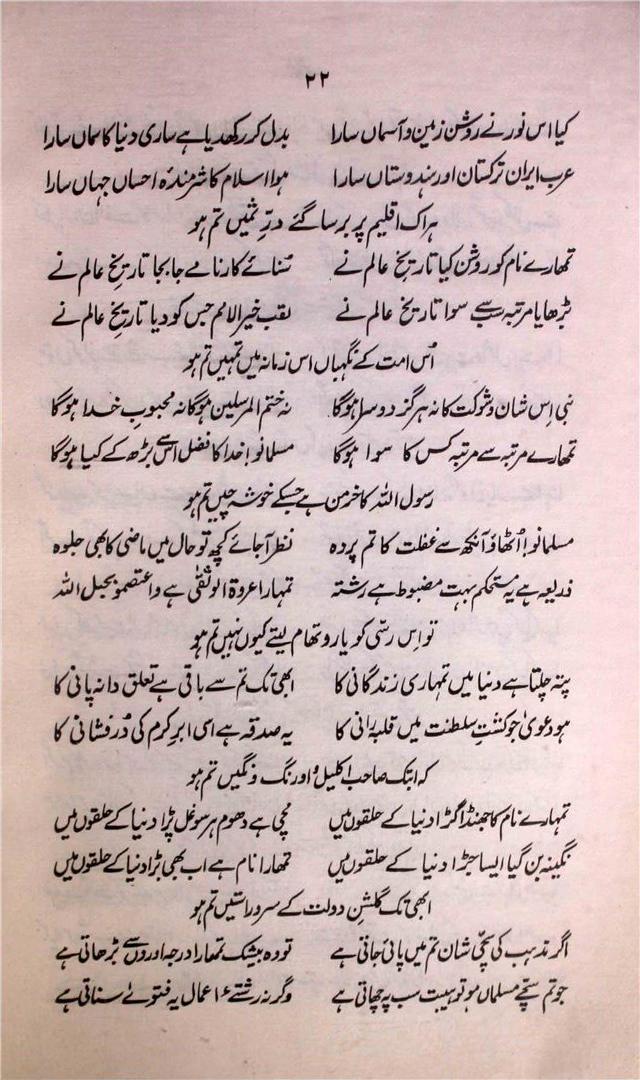 ۲۲
کیا اس نور نے روشن زمین و آسماں سارا بدل کر رکھدیا ہے ساری دنیا کا سماں سارا
عرب ایران ترکستان اور ہندوستاں سارا ہوا اسلام کا شرمندۂ احساں جہاں سارا
ہر اک اقلیم پر برسا گئے درِّ ثمیں تم ہو
تمھارے نام کو روشن کیا تاریخ عالم نے سُنائے کارنامے جابجا تاریخ عالم نے
بڑھایا مرتبہ سب سے سوا تاریخ عالم نے لقب خیرالامم جس کو دیا تاریخ عالم نے
اُس امت کے نگہباں اس زمانہ میں تمہیں تم ہو
نبی اِس شان و شوکت کا نہ ہرگز دوسرا ہوگا نہ ختم المرسلین ہوگا نہ محبوب خدا ہوگا
تمھارے مرتبہ سے مرتبہ کس کا سوا ہوگا مسلمانو! خدا کا فضل اس سے بڑھ کے کیا ہوگا
رسول اللہ کا خرمن ہے جسکے خوشہ چیں تم ہو
مسلمانو! اُٹھاؤ آنکھ سے غفلت کا تم پردہ نظر آجائے کچھ تو حال میں ماضی کا بھی جلوہ
ذریعہ ہے یہ مستحکم بہت مضبوط ہے رشتہ تمہارا عروۃ الوثقیٰ ہے واعتصمو بحبل اللہ
تو اِس رسّی کو یارو تھام لیتے کیوں نہیں تم ہو
پتہ چلتا ہے دنیا میں تمہاری زندگانی کا ابھی تک تم سے باقی ہے تعلق دانہ پانی کا
ہو دعویٰ جو کشتِ سلطنت میں قلبہ رانی کا یہ صدقہ ہے اسی ابرِ کرم کی دُرفشانی کا
کہ ابتک صاحب اکلیل و اورنگ و نگیں تم ہو
تمہارے نام کا جھنڈا گڑا دنیا کے حلقوں میں مچی ہے دھوم ہر سو غل پڑا دنیا کے حلقوں میں
نگینہ بن گیا ایسا جڑا دنیا کے حلقوں میں تمھارا نام ہے اب بھی بڑا دنیا کے حلقوں میں
ابھی تک گلشنِ دولت کے سرو راستیں تم ہو
اگر مذہب کی سچّی شان تم میں پائی جاتی ہے تو وہ بیشک تمھارا درجہ اوروں سے بڑھاتی ہے
جو تم سچّے مسلماں ہو تو ہیبت سب پہ چھاتی ہے وگرنہ زشتیٔ اعمال یہ فتوے سناتی ہے